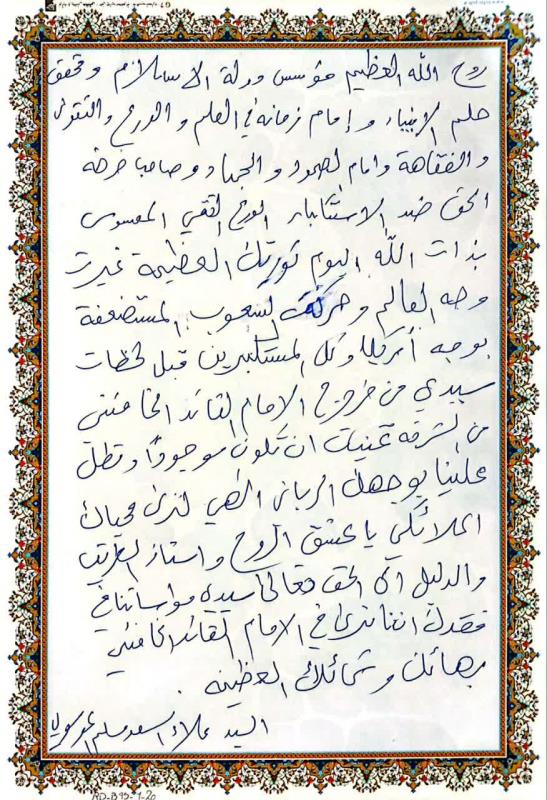 روح الله العظيم مؤسس دولة الاسلام ومحقق
حلم الانبياء وإمام زمانه في العلم والورع والتقوى
والفقاهة وامام الصمود والجهاد وصاحب صرخة
الحق ضد الاستكبار الورع التقي
بذات الله اليوم ثورتك العظيمة غيرت
وجه العالم وحركت الشعوب المستضعفة
بوجه أمريكا وكل المستكبرين قبل لحظات
سيدي من خروج الامام القائد الخامنئي
من الشرفة تمنيت ان تكون موجودًا وتطل
علينا بوجهك الرباني الالهي لنرى محياك
الملائكي يا عشق الروح واستاذ الطريق
والدليل الى الحق تعالى سيدي مواساتنا في
فقدك اننا نرى في الامام القائد الخامنئي
بهائك وشمائلك العظيمة.
السيد علاء
RD-B95-1-20